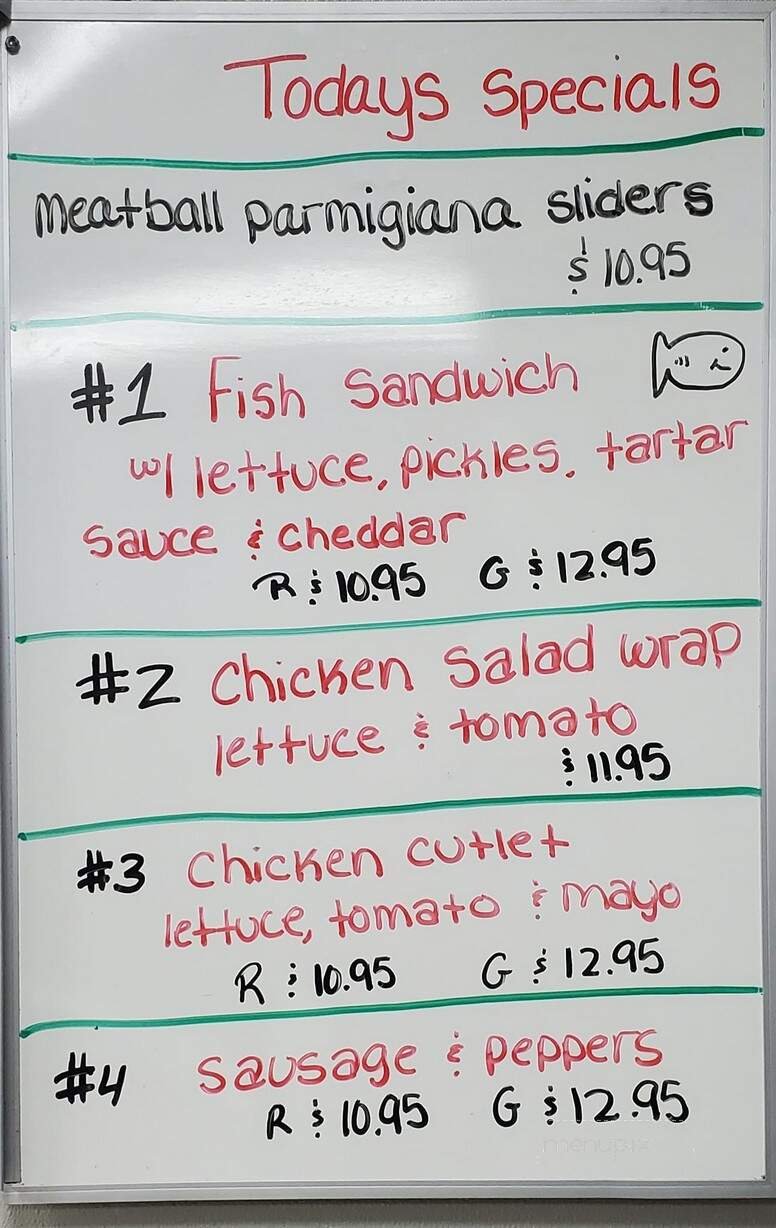 Todays Specials
meatball parmigiana sliders
$ 10.95
#1 Fish Sandwich
w/ lettuce, pickles, tartar
sauce & cheddar
R $ 10.95 G $ 12.95
#2 Chicken Salad wrap
lettuce & tomato
$ 11.95
#3 Chicken cutlet
lettuce, tomato & mayo
R $ 10.95 G $ 12.95
#4 Sausage & peppers
R $ 10.95 G $ 12.95
menupix